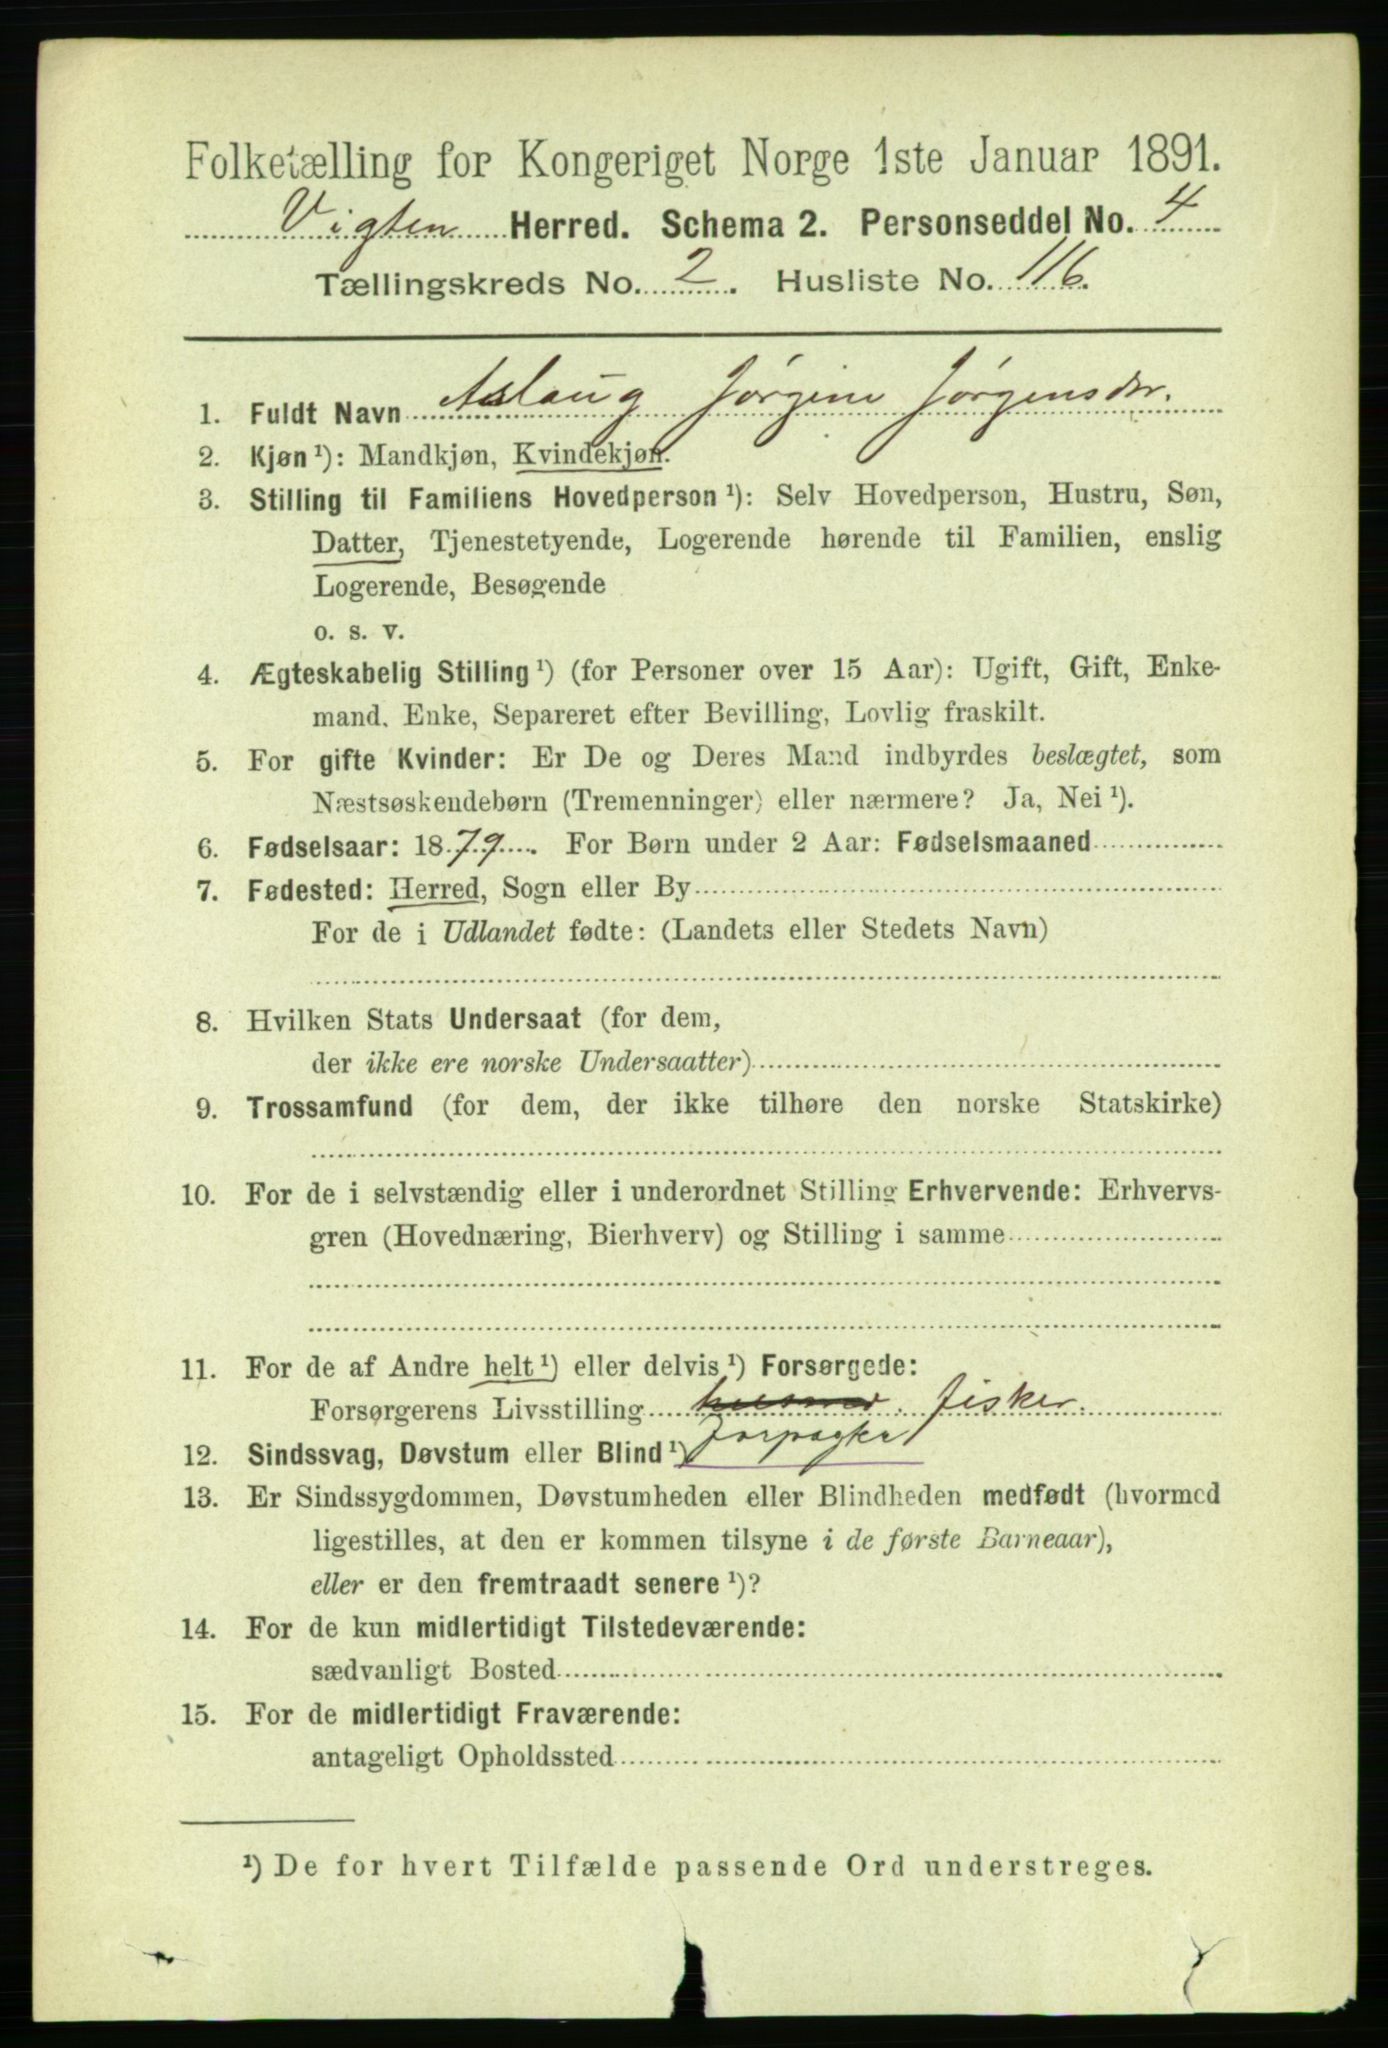 Folketælling for Kongeriget Norge 1ste Januar 1891.
Vigten Herred. Schema 2. Personseddel No. 4
Tællingskreds No. 2. Husliste No. 116.
1. Fuldt Navn Aslaug Jørgine Jørgensdtr.
2. Kjøn ¹): Mandkjøn, Kvindekjøn.
3. Stilling til Familiens Hovedperson ¹): Selv Hovedperson, Hustru, Søn,
Datter, Tjenestetyende, Logerende hørende til Familien, enslig
Logerende, Besøgende
o. s. v.
4. Ægteskabelig Stilling ¹) (for Personer over 15 Aar): Ugift, Gift, Enke-
mand, Enke, Separeret efter Bevilling, Lovlig fraskilt.
5. For gifte Kvinder: Er De og Deres Mand indbyrdes beslægtet, som
Næstsøskendebørn (Tremenninger) eller nærmere? Ja, Nei ¹).
6. Fødselsaar: 1879. For Børn under 2 Aar: Fødselsmaaned
7. Fødested: Herred, Sogn eller By
For de i Udlandet fødte: (Landets eller Stedets Navn)
8. Hvilken Stats Undersaat (for dem,
der ikke ere norske Undersaatter)
9. Trossamfund (for dem, der ikke tilhøre den norske Statskirke)
10. For de i selvstændig eller i underordnet Stilling Erhvervende: Erhvervs-
gren (Hovednæring, Bierhverv) og Stilling i samme
11. For de af Andre helt ¹) eller delvis ¹) Forsørgede:
Forsørgerens Livsstilling husmd. fisker.
forpagter
12. Sindssvag, Døvstum eller Blind ¹)
13. Er Sindssygdommen, Døvstumheden eller Blindheden medfødt (hvormed
ligestilles, at den er kommen tilsyne i de første Barneaar),
eller er den fremtraadt senere ¹)?
14. For de kun midlertidigt Tilstedeværende:
sædvanligt Bosted
15. For de midlertidigt Fraværende:
antageligt Opholdssted
¹) De for hvert Tilfælde passende Ord understreges.